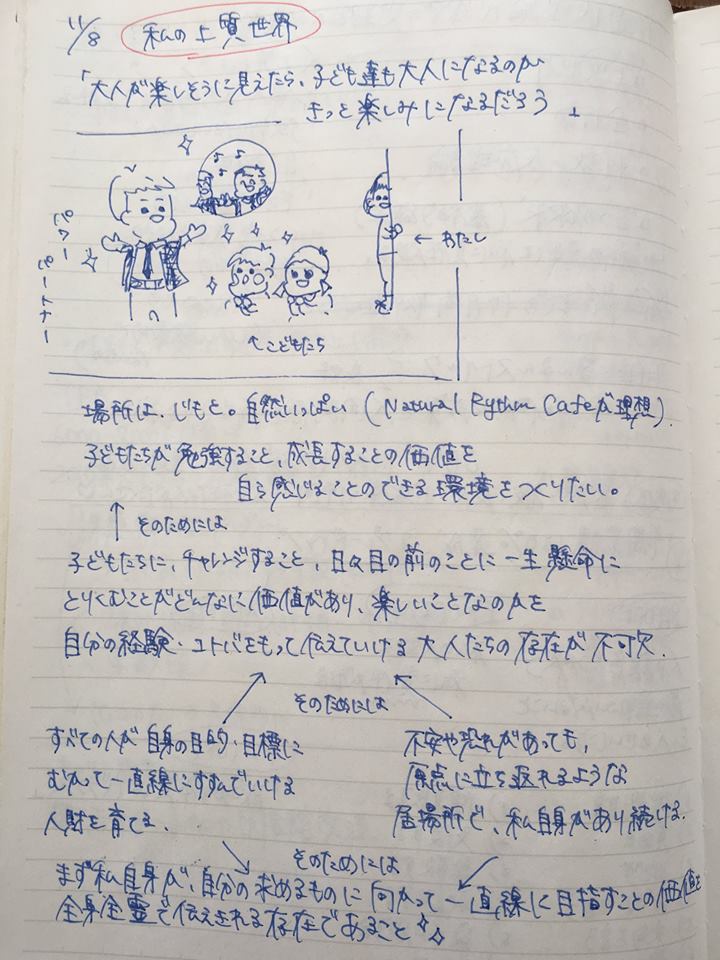 11/8 私の上質世界
「大人が楽しそうに見えたら、子ども達も大人になるのが
きっと楽しみになるだろう」
←わたし
↑こどもたち
場所は、じもと。自然いっぱい (Natural Rythm Cafeが理想).
子どもたちが勉強すること、成長することの価値を
自ら感じることのできる環境をつくりたい。
↑ そのためには
子どもたちに、チャレンジすること、日々目の前のことに一生懸命に
とりくむことがどんなに価値があり、楽しいことなのかを
自分の経験・コトバをもって伝えていける大人たちの存在が不可欠.
そのためには
すべての人が自身の目的・目標に
むかって一直線にすすんでいける
人財を育てる.
不安や恐れがあっても、
原点に立ち返れるような
居場所で、私自身があり続ける.
そのためには
まず私自身が、自分の求めるものに向かって一直線に目指すことの価値を
全身全霊で伝えきれる存在であること